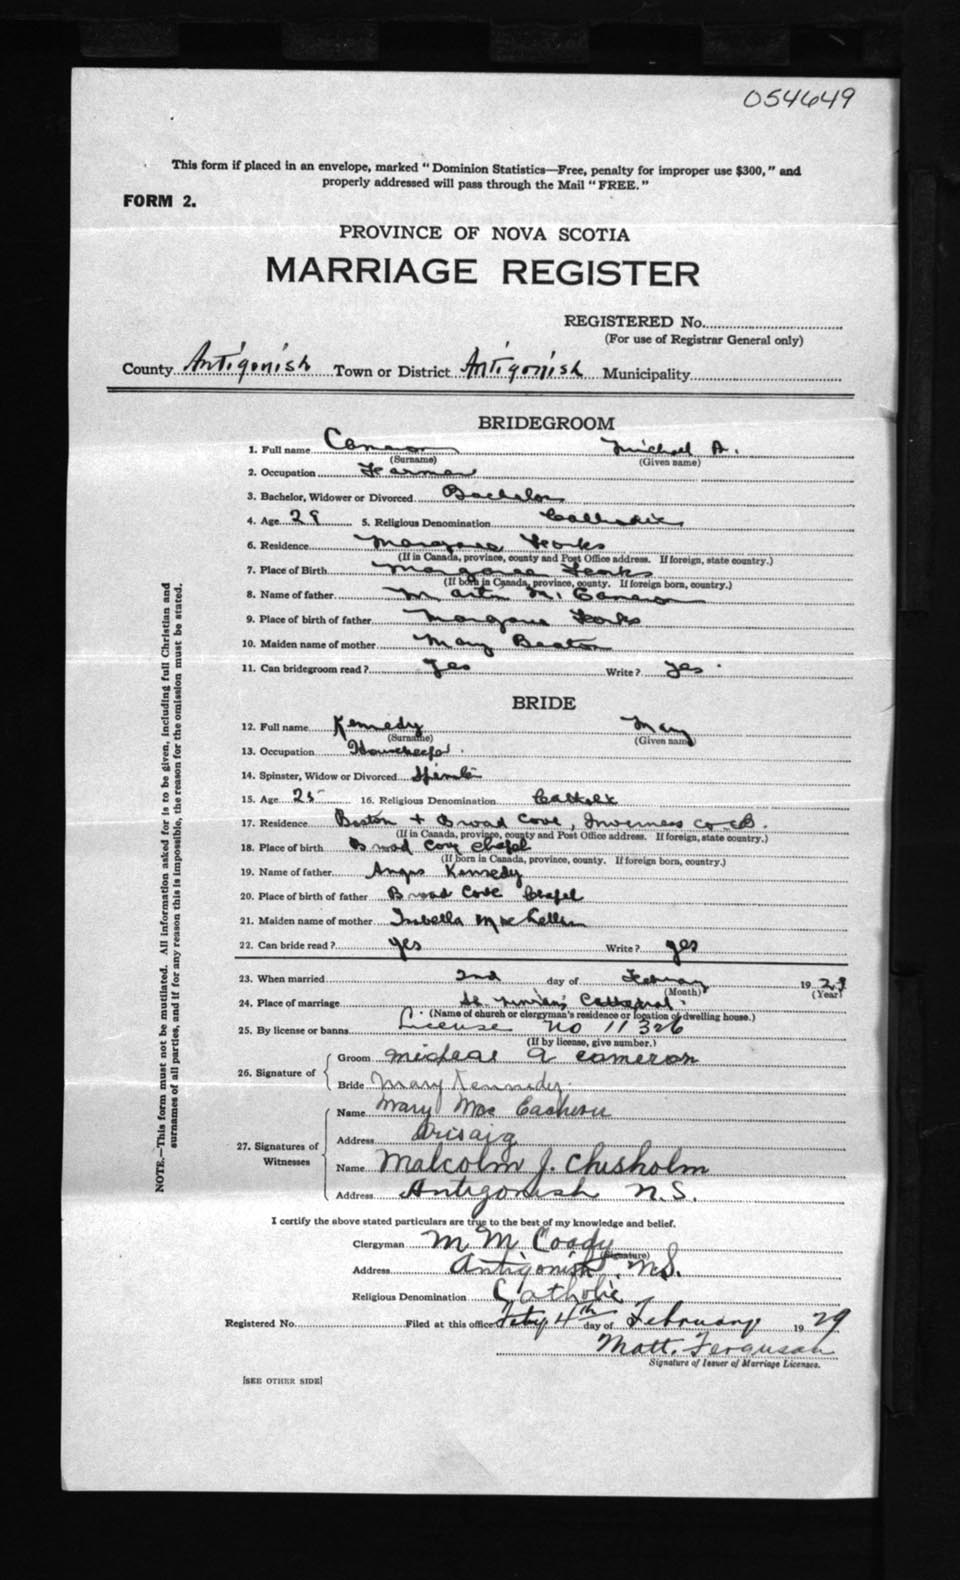 054649
This form if placed in an envelope, marked "Dominion Statistics—Free, penalty for improper use $300," and
properly addressed will pass through the Mail "FREE."
FORM 2.
PROVINCE OF NOVA SCOTIA
MARRIAGE REGISTER
REGISTERED No.
(For use of Registrar General only)
County Antigonish Town or District Antigonish Municipality
BRIDEGROOM
1. Full name Cameron Michael A.
(Surname) (Given name)
2. Occupation Farmer
3. Bachelor, Widower or Divorced Bachelor
4. Age 29 5. Religious Denomination Catholic
6. Residence Margaree Forks
(If in Canada, province, county and Post Office address. If foreign, state country.)
7. Place of Birth Margaree Forks
(If born in Canada, province, county. If foreign born, country.)
8. Name of father Martin M. Cameron
9. Place of birth of father Margaree Forks
10. Maiden name of mother Mary Beaton
11. Can bridegroom read? yes Write? yes.
BRIDE
12. Full name Kennedy Mary
(Surname) (Given name)
13. Occupation Housekeeper
14. Spinster, Widow or Divorced
15. Age 25 16. Religious Denomination Catholic
17. Residence Boston + Broad Cove, Inverness Co
(If in Canada, province, county and Post Office address. If foreign, state country.)
18. Place of birth Broad Cove Chapel
(If born in Canada, province, county. If foreign born, country.)
19. Name of father Angus Kennedy
20. Place of birth of father Broad Cove Chapel
21. Maiden name of mother Isabella MacLellan
22. Can bride read? yes Write? yes
23. When married 2nd day of February 1929
(Month) (Year)
24. Place of marriage St Ninian's Cathedral.
(Name of church or clergyman's residence or location of dwelling house.)
25. By license or banns License No 11326
(If by license, give number.)
26. Signature of
Groom Michael A Cameron
Bride Mary Kennedy
27. Signatures of Witnesses
Name Mary Mac Eachern
Address Arisaig
Name Malcolm J. Chisholm
Address Antigonish N.S.
I certify the above stated particulars are true to the best of my knowledge and belief.
Clergyman M M Coady
(Signature)
Address Antigonish N.S.
Religious Denomination Catholic
Registered No. Filed at this office 4th day of February 1929
Matt. Ferguson
Signature of Issuer of Marriage Licenses.
[SEE OTHER SIDE]
NOTE.—This form must not be mutilated. All information asked for is to be given, including full Christian and
surnames of all parties, and if for any reason this is impossible, the reason for the omission must be stated.